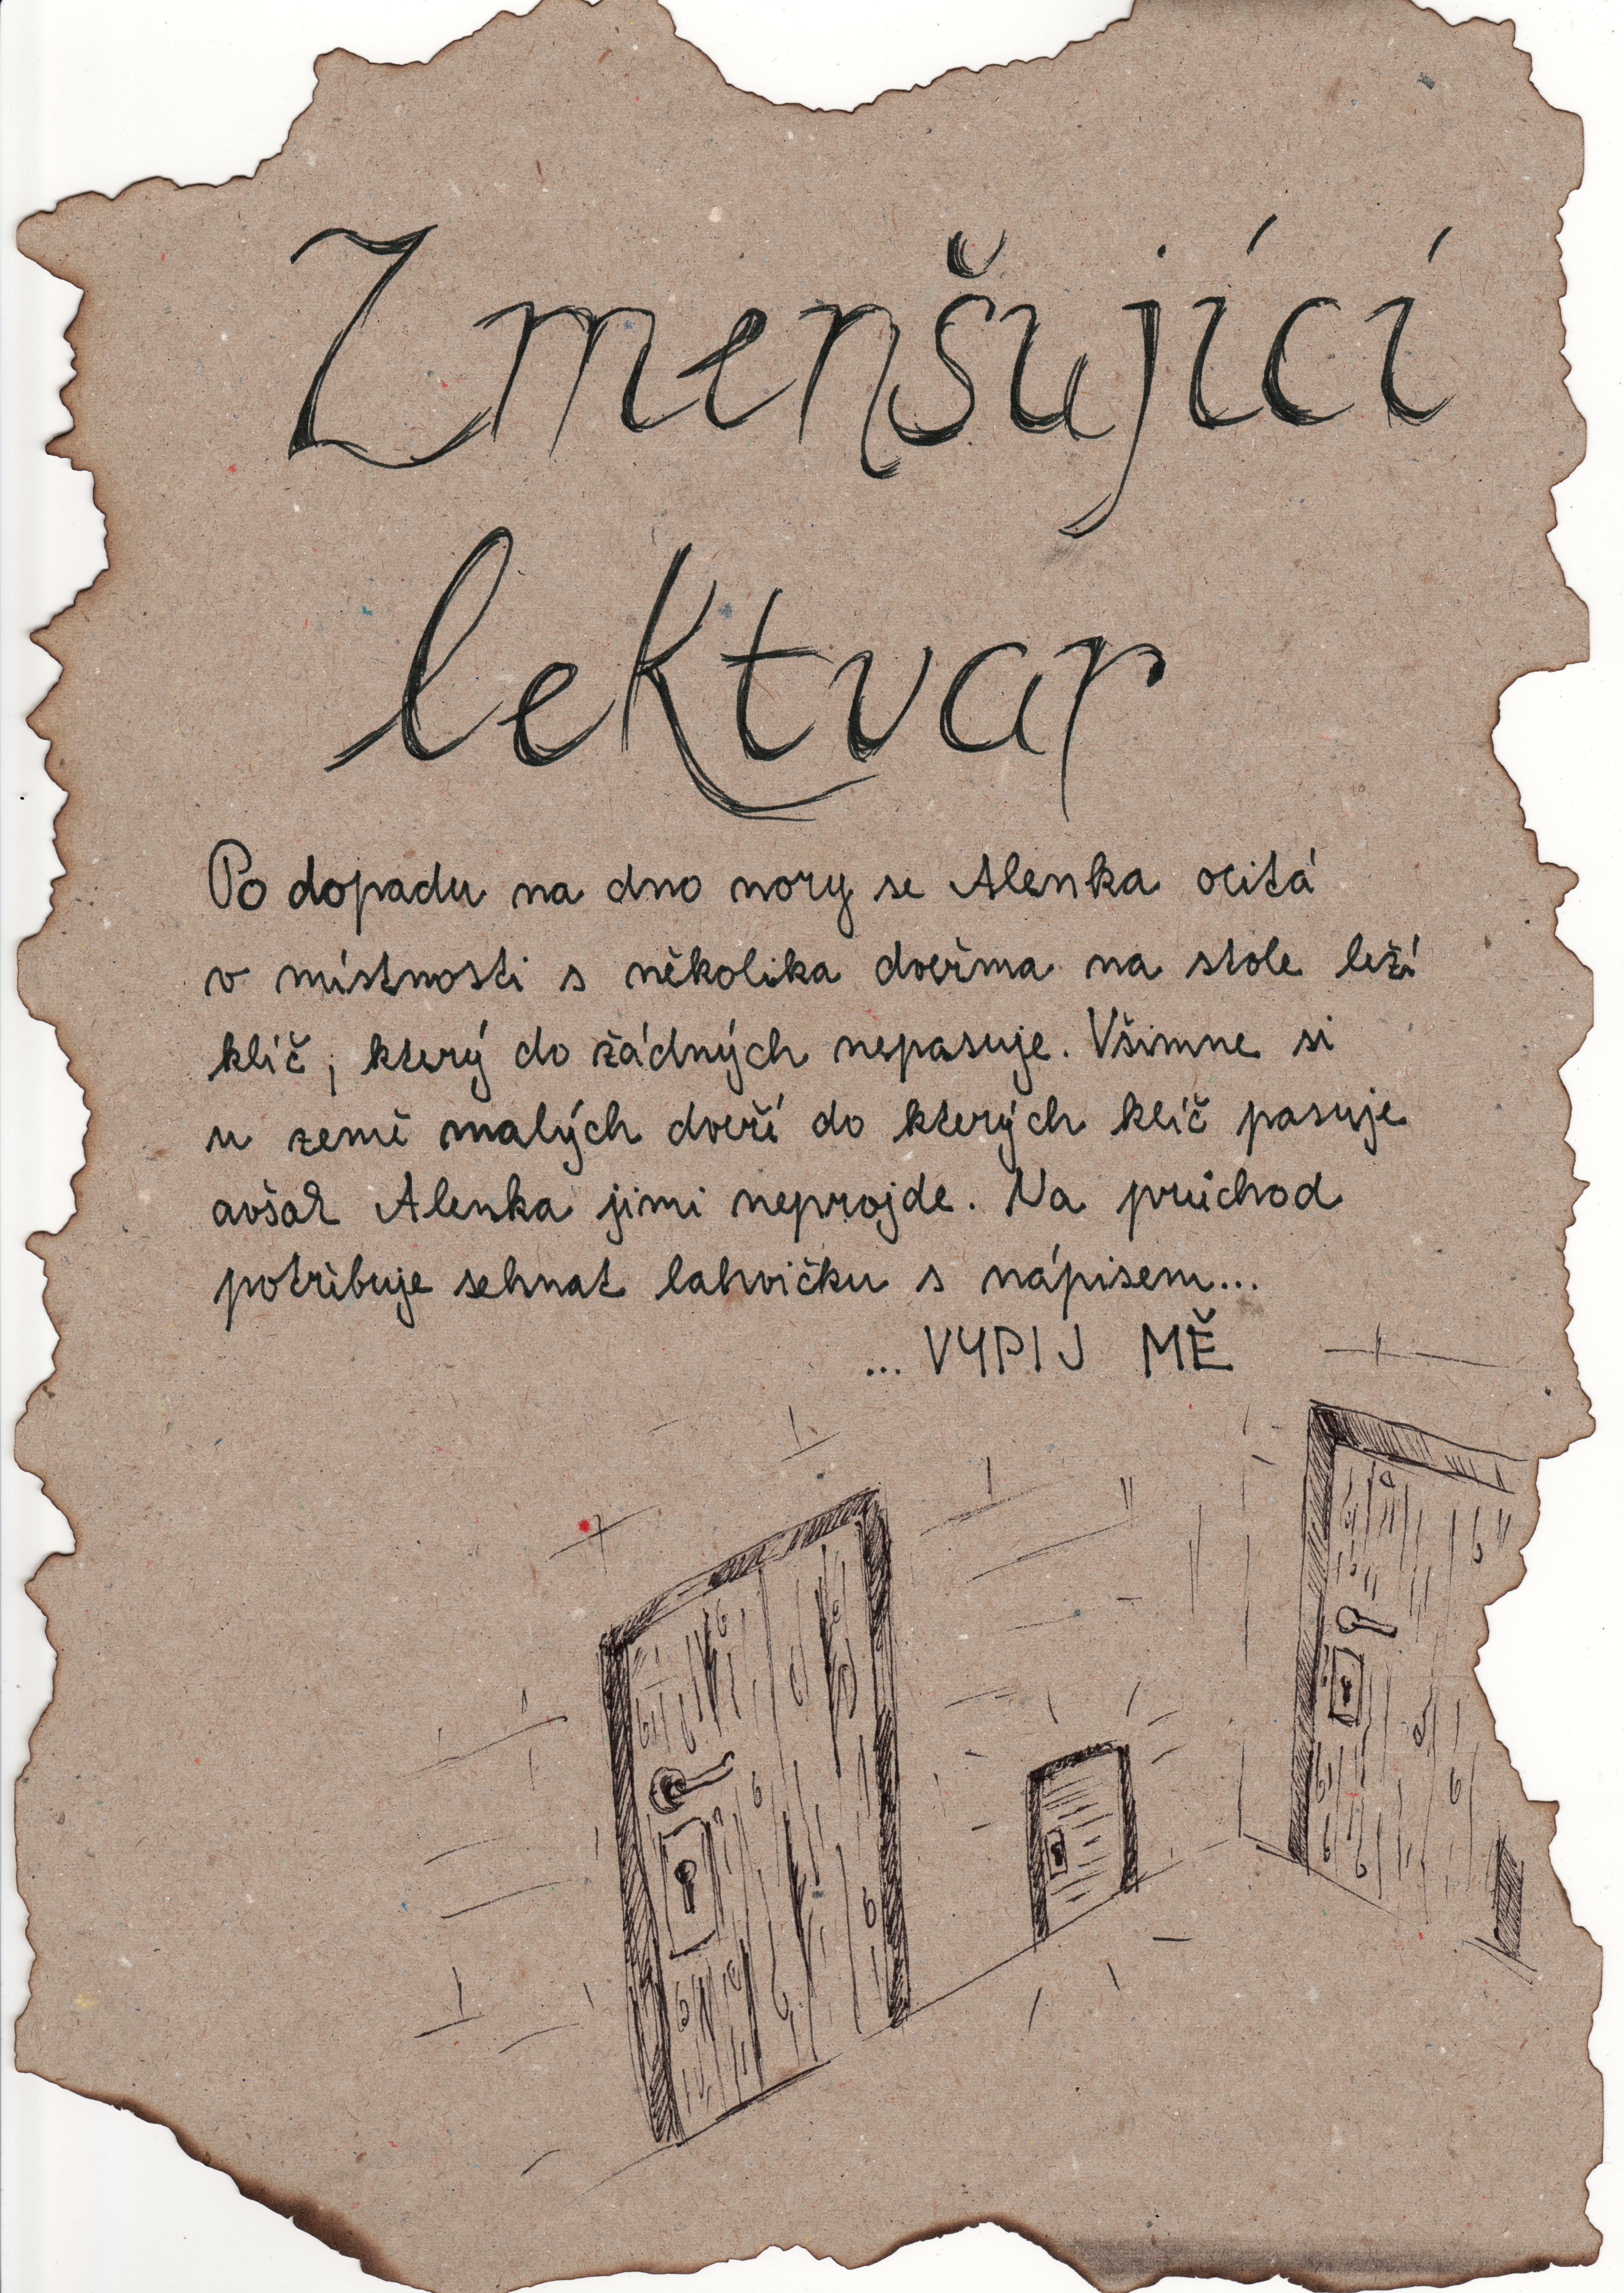 Zmenšující
lektvar
Po dopadu na dno nory se Alenka ocitá
v místnosti s několika dveřma na stole leží
klíč, který do žádných nepasuje. Všimne si
u země malých dveří do kterých klíč pasuje
avšak Alenka jimi neprojde. Na průchod
potřibuje sehnat lahvičku s nápisem...
... VYPIJ MĚ